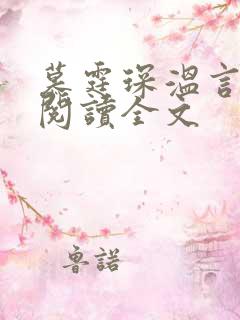 慕霆琛溫言
閱讀全文
魯諾